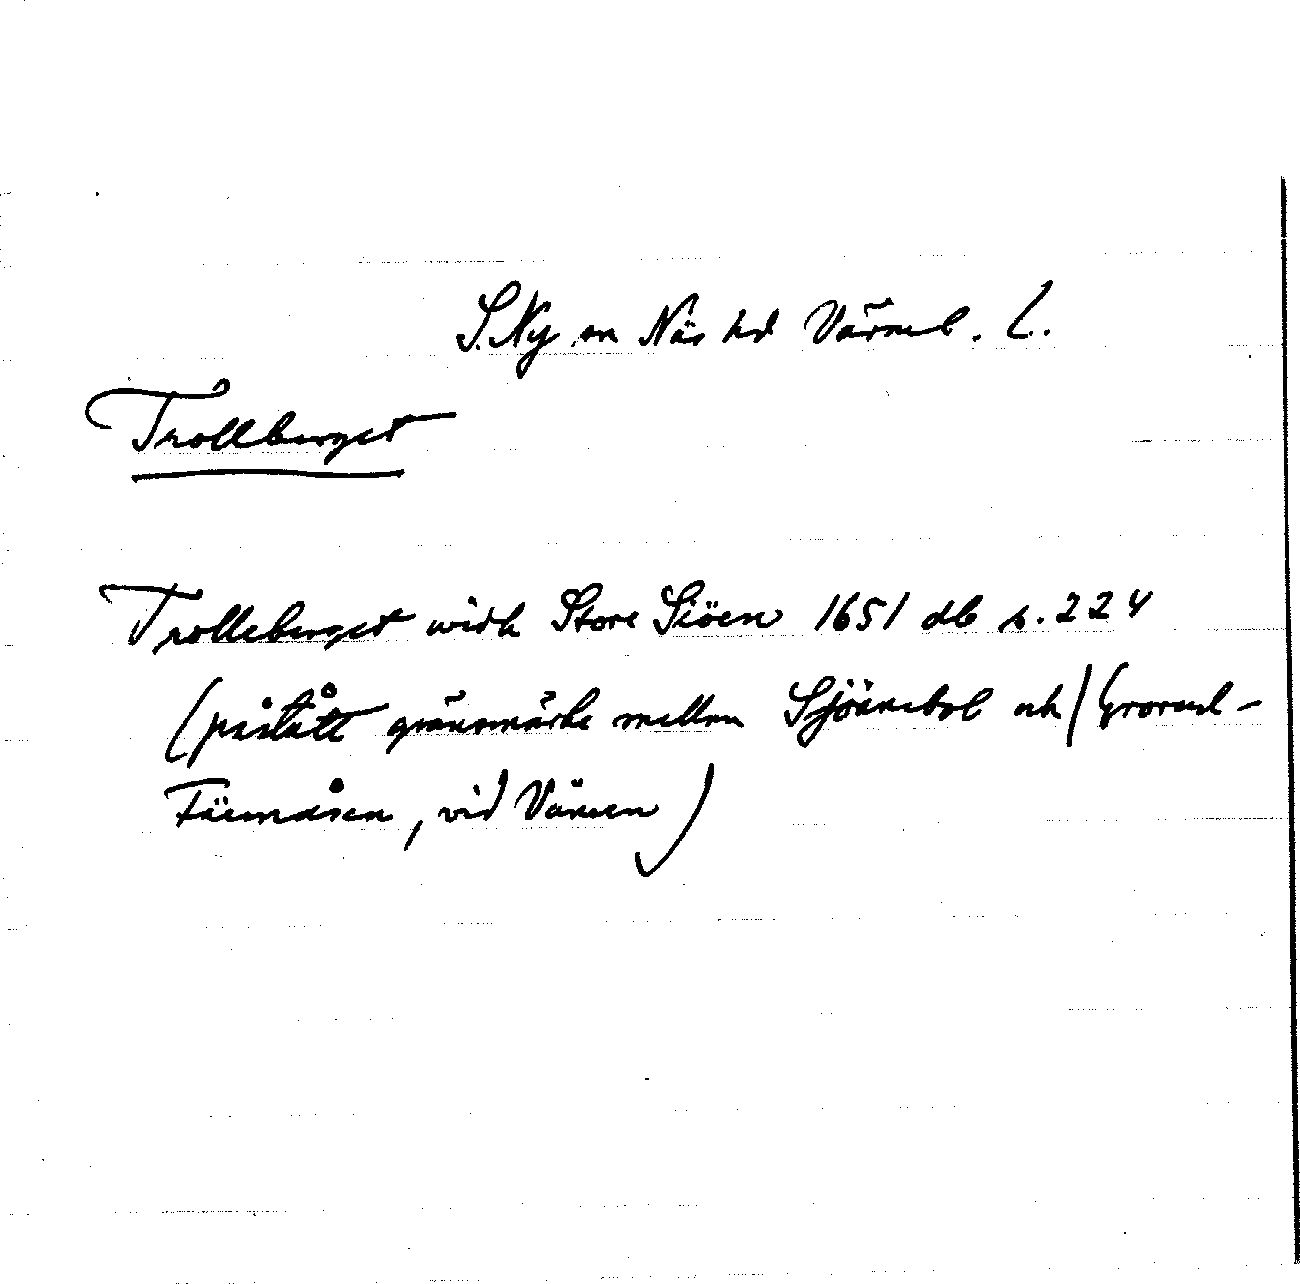 S. Ny sn Näs hd Värml. L.
Trollberget
Trolleberget widh Store Siöen 1651 db s. 224
(påstått gränsmärke mellan Sjöänebol och /
, vid Vänern)